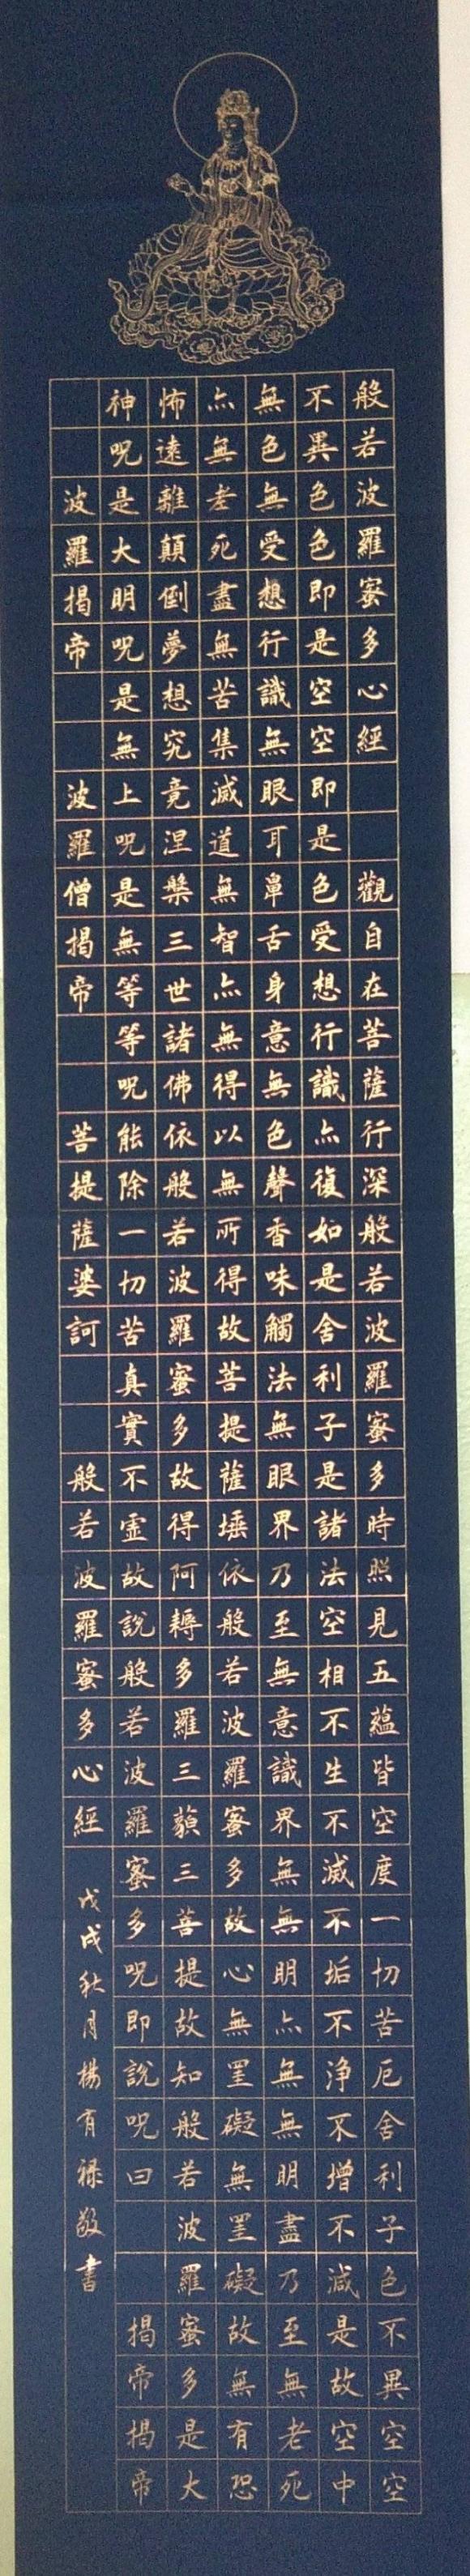 般若波羅蜜多心經 觀自在菩薩行深般若波羅蜜多時照見五蘊皆空度一切苦厄舍利子色不異空空
不異色色即是空空即是色受想行識亦復如是舍利子是諸法空相不生不滅不垢不淨不增不減是故空中
無色無受想行識無眼耳鼻舌身意無色聲香味觸法無眼界乃至無意識界無無明亦無無明盡乃至無老死
亦無老死盡無苦集滅道無智亦無得以無所得故菩提薩埵依般若波羅蜜多故心無罣礙無罣礙故無有恐
怖遠離顛倒夢想究竟涅槃三世諸佛依般若波羅蜜多故得阿耨多羅三藐三菩提故知般若波羅蜜多是大
神呪是大明呪是無上呪是無等等呪能除一切苦真實不虛故說般若波羅蜜多呪即說呪曰 揭帝揭帝
波羅揭帝 波羅僧揭帝 菩提薩婆訶 般若波羅蜜多心經
戊戌秋月楊有祿敬書